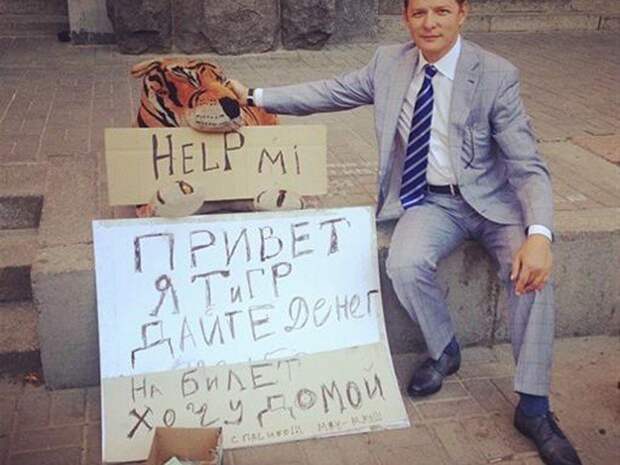 HELP Mi
ПРИВЕТ
Я ТИГР
ДАЙТЕ ДЕНЕГ
НА БИЛЕТ
ХОЧУ ДОМОЙ